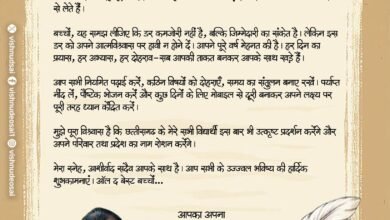 से लेते हैं ।
बच्चों, यह समझ लीजिए कि डर कमजोरी नहीं है, बल्कि जिम्मेदारी का संकेत है। लेकिन इस
डर को अपने आत्मविश्वास पर हावी न होने दें। आपने पूरे वर्ष मेहनत की है। हर दिन का
प्रयास, हर अभ्यास, हर दोहराव- सब आपकी ताकत बनकर आपके साथ खड़े हैं।
आप सभी नियमित पढ़ाई करें, कठिन विषयों को दोहराएँ, समय का संतुलन बनाए रखें। पर्याप्त
नींद लें, पौष्टिक भोजन करें और कुछ दिनों के लिए मोबाइल से दूरी बनाकर अपने लक्ष्य पर
पूरी तरह ध्यान केंद्रित करें।
मुझे पूरा विश्वास है कि छत्तीसगढ़ के मेरे सभी विद्यार्थी इस बार भी उत्कृष्ट प्रदर्शन करेंगे और
अपने परिवार तथा प्रदेश का नाम रोशन करेंगे।
मेरा स्नेह, आशीर्वाद सदैव आपके साथ है। आप सभी के उज्ज्वल भविष्य की हार्दिक
शुभकामनाएं। ऑल द बेस्ट बच्चों...
आपका अपना
vishnudsai
vishnudeosai1
vishnudeosai